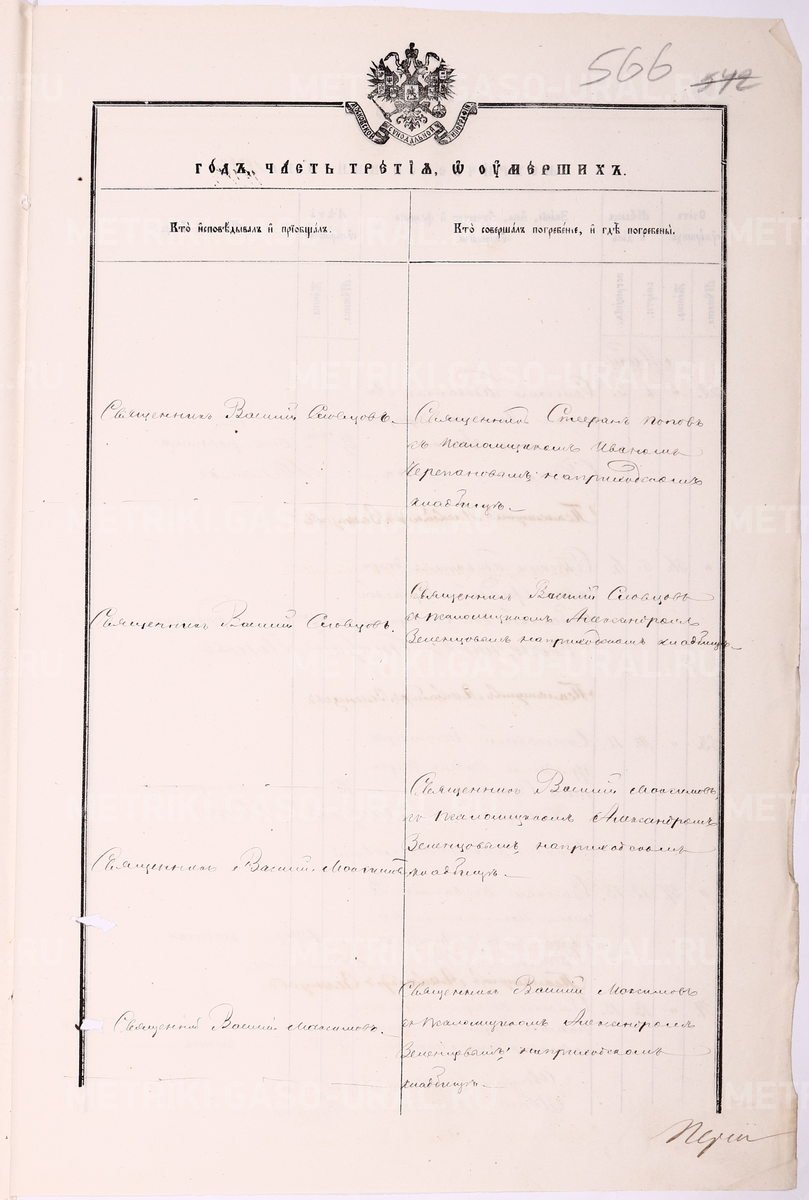 566 542
ГОДЪ, ЧАСТЬ ТРЕТІѦ, Ѿ ОУМЕРШИХЪ.
Кто исповѣдывалъ и пріобщалъ.
Кто совершалъ погребеніе, и гдѣ погребены.
Священникъ Василій Словцовъ.
Священникъ Стефанъ Поповъ
съ псаломщикомъ Иваномъ
Черепановымъ на приходскомъ
кладбищѣ.
Священникъ Василій Словцовъ.
Священникъ Василій Словцовъ
съ псаломщикомъ Александромъ
Зеленцовымъ на приходскомъ кладбищѣ.
Священникъ Василій Максимовъ
Священникъ Василій Максимовъ
съ псаломщикомъ Александромъ
Зеленцовымъ на приходскомъ
кладбищѣ.
Священникъ Василій Максимовъ.
Священникъ Василій Максимовъ
съ псаломщикомъ Александромъ
Зеленцовымъ на приходскомъ
кладбищѣ.
METRIKI.GASO-URAL.RU